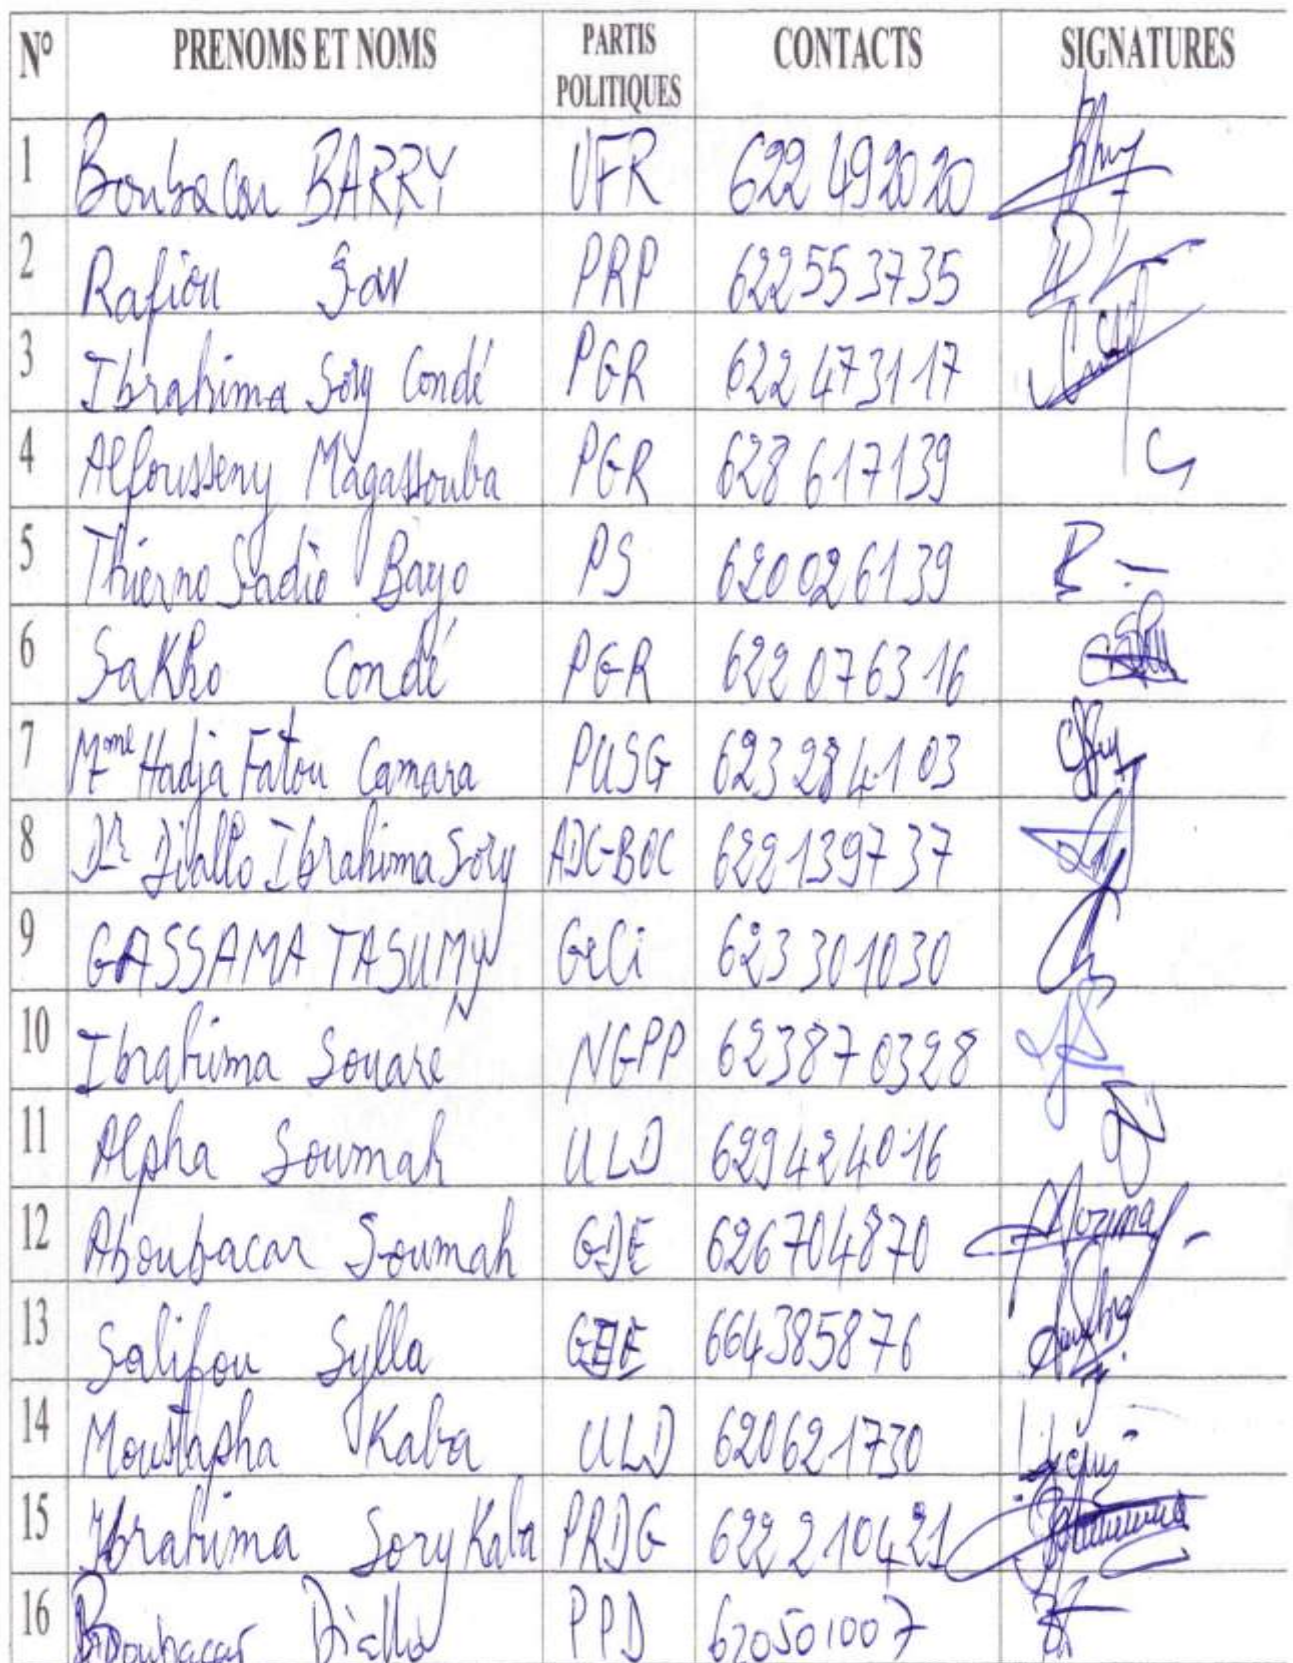 N° PRENOMS ET NOMS PARTIS POLITIQUES CONTACTS SIGNATURES
1 Boubacar BARRY UFR 622 49 20 20
2 Rafiou Sow PRP 622553735
3 Ibrahima Sory Condé PGR 622 473117
4 Alfousseny Magassouba PGR 628 617139
5 Thierno Sadio Bayo PS 620026139
6 SaKho Condé PGR 622076316
7 Mme Hadja Fatou Camara PUSG 623284103
8 Dr Diallo Ibrahima Sory ADC-BOC 622139737
9 GASSAMA TASUMY GeCi 623301030
10 Ibrahima Souaré NGPP 623870328
11 Alpha Soumah ULD 629424016
12 Aboubacar Soumah GDE 626704870
13 Salifou Sylla 664385876
14 Moustapha Kaba ULD 620621730
15 Ibrahima Sory Kaba PRDG 622210421
16 Boubacar Diallo PPD 620501007